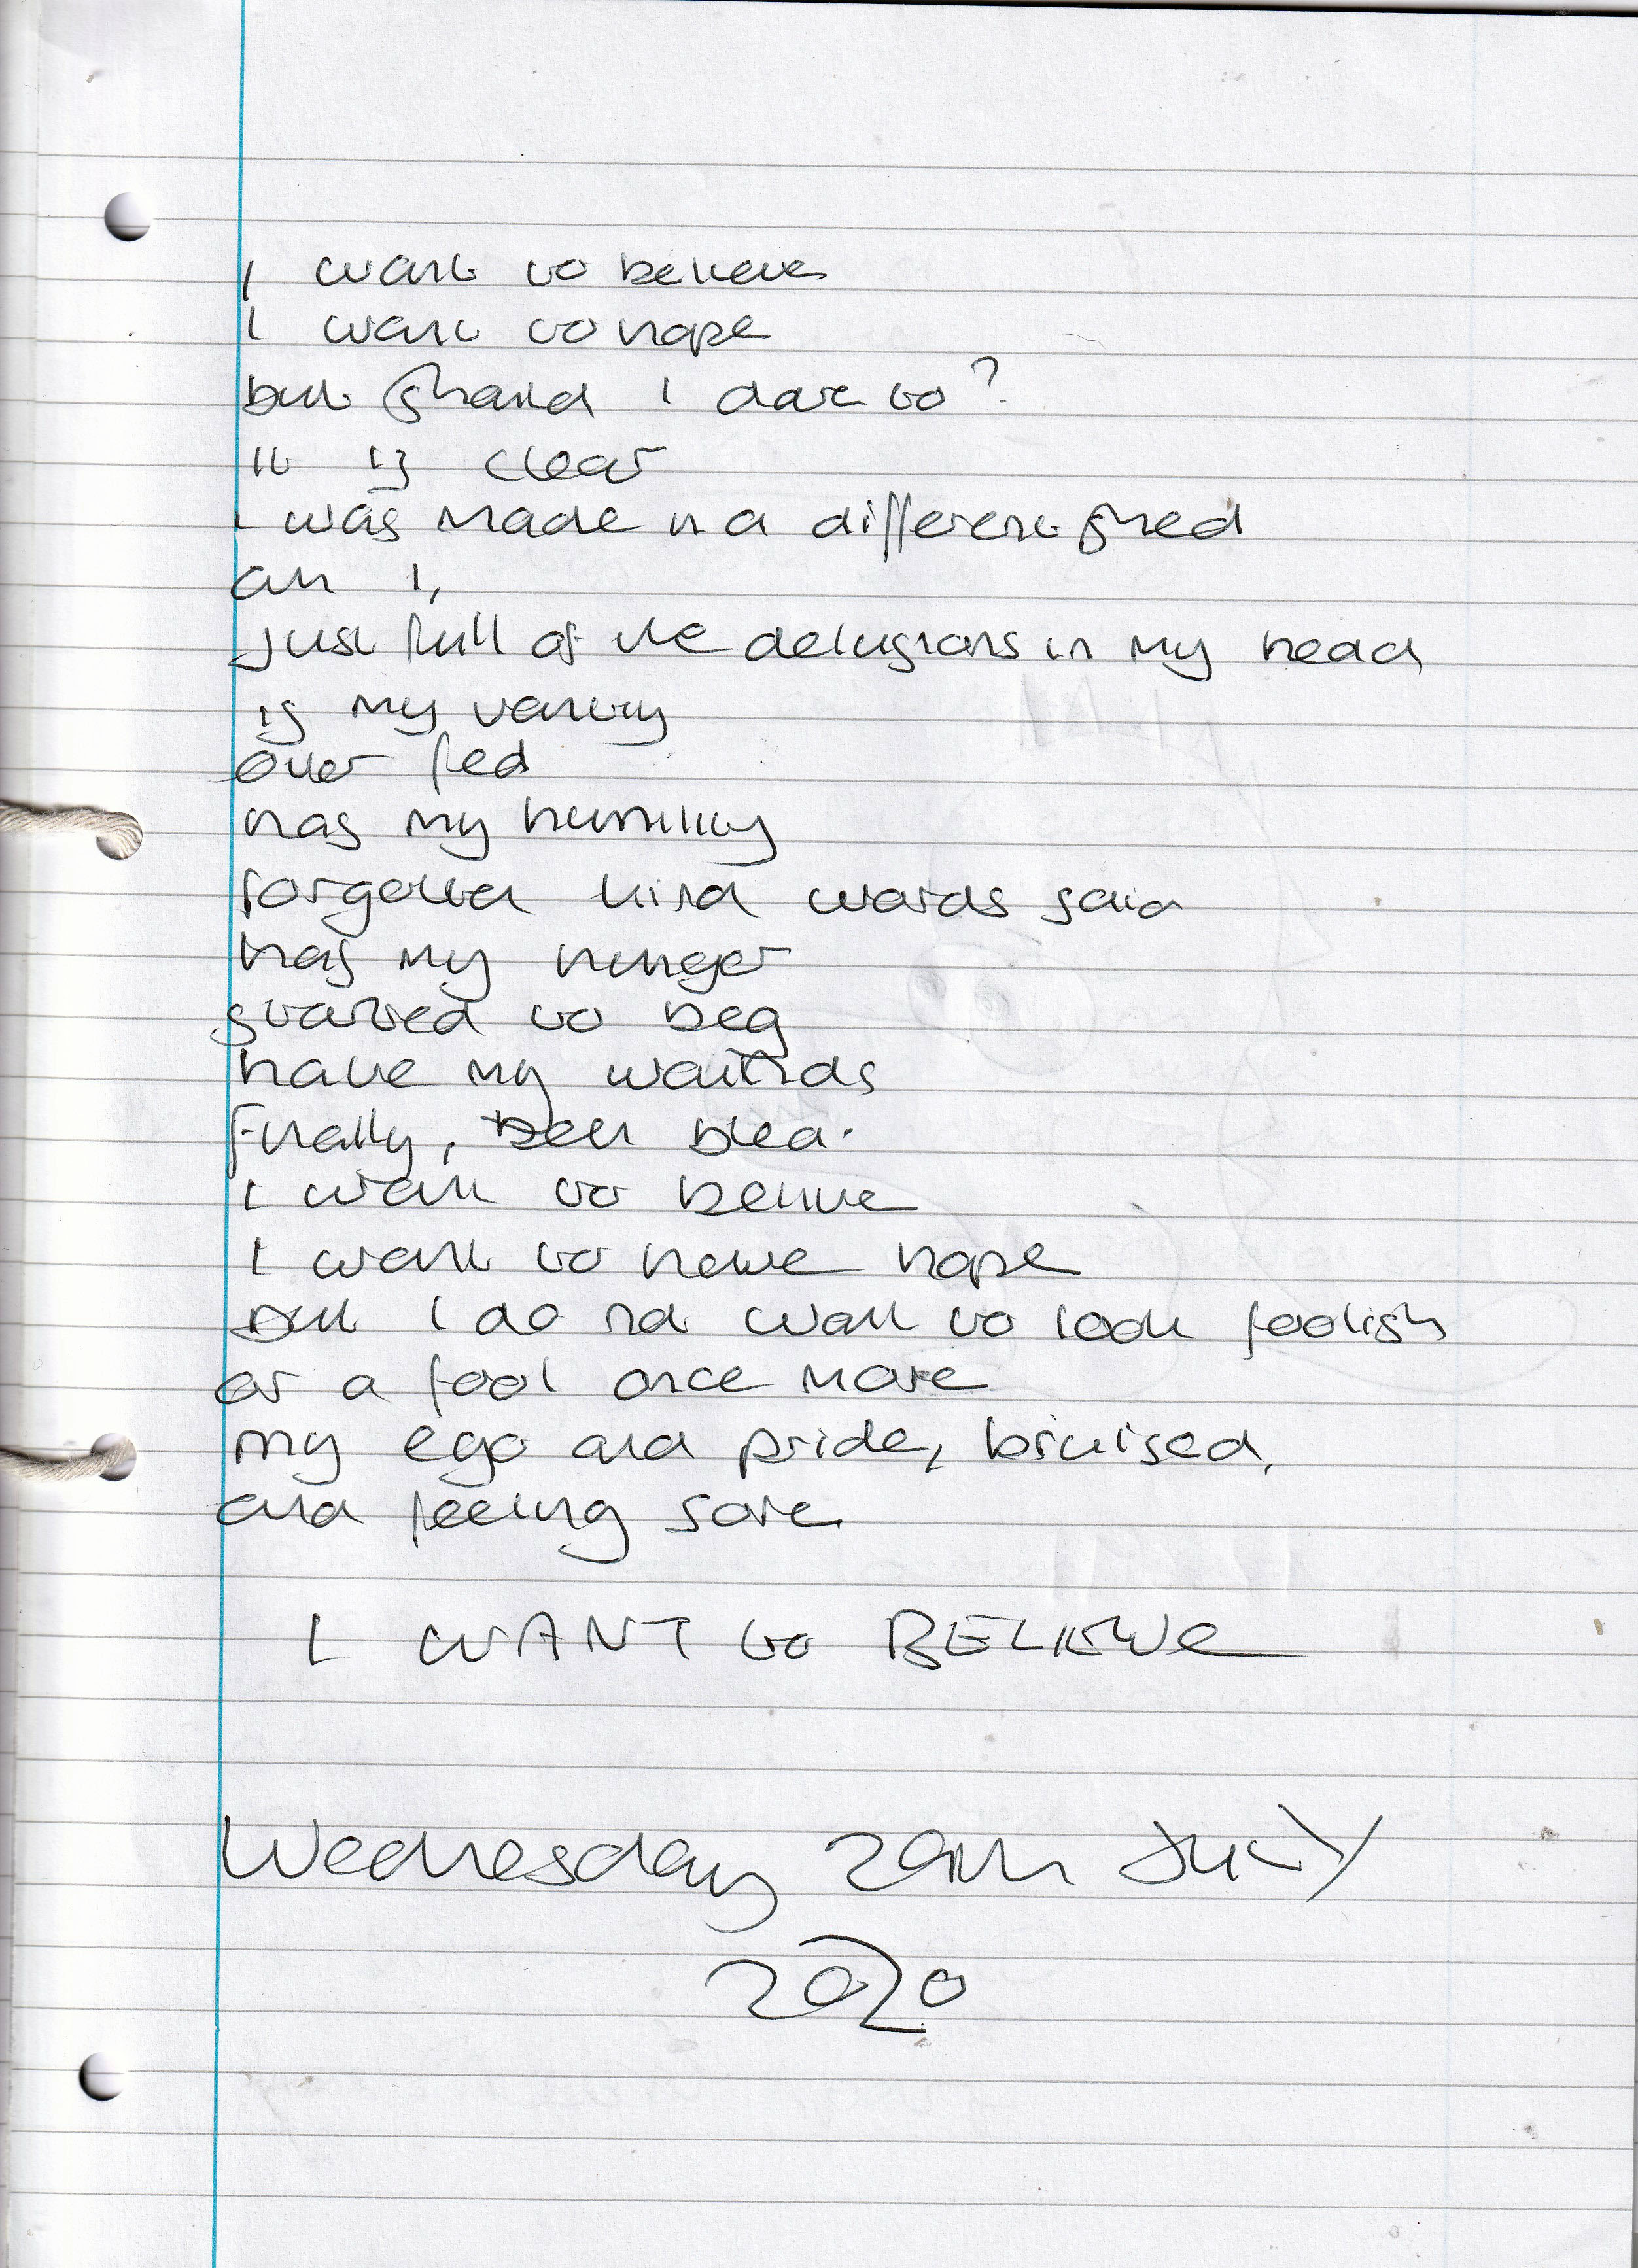 I want to believe
I want to hope
but should I dare to?
it is clear
I was made in a different shed
am I,
just full of the delusions in my head
is my vanity
over fed
has my humility
forgotten kind words said
has my hunger
starved to beg
have my wounds
finally, been bled.
I want to believe
I want to have hope
but I do not want to look foolish
or a fool once more
my ego and pride, bruised,
and feeling sore
I WANT to BELIEVE
Wednesday 29th JULY
2020